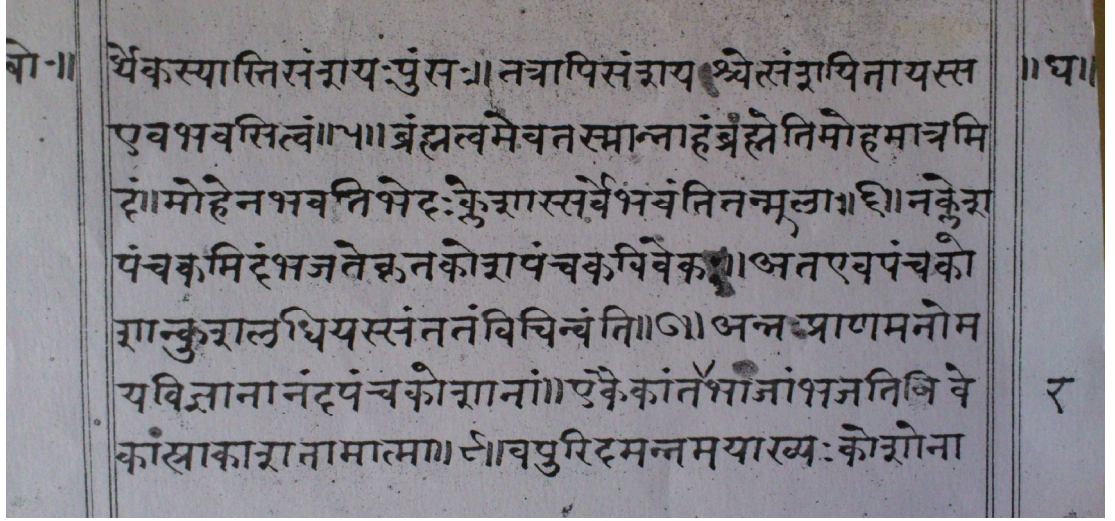 बो॰॥ र्थैकस्यास्तिसंशयःपुंसः॥तत्रापिसंशयश्चेत्संशयितायस्स ॥ध॥
एवभवसित्वं॥५॥ब्रंह्मत्वमेवतस्मान्नाहंब्रंह्मेतिमोहमात्रमि
दं॥मोहेनभवतिभेदःक्लेशास्सर्वेभवंतितन्मूलाः॥६॥नक्लेश
पंचकमिदंभजतेकृतकोशपंचकविवेकः॥अतएवपंचको
शान्कुशलधियस्संततंविचिन्वंति॥७॥अन्नप्राणमनोम
यविज्ञानानंदपंचकोशानां॥एकैकांतर्भाजांभजतिविवे २
कात्प्रकाशतामात्मा॥८॥वपुरिदमन्नमयाख्यःकोशोना